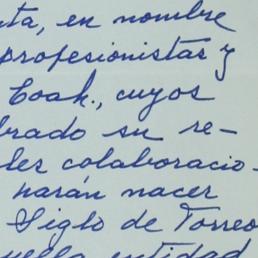 ta, en nombre
profesionistas y
Coah., cuyos
brado su re-
les colaboracio-
narán nacer
Siglo de Torreo
uella entidad